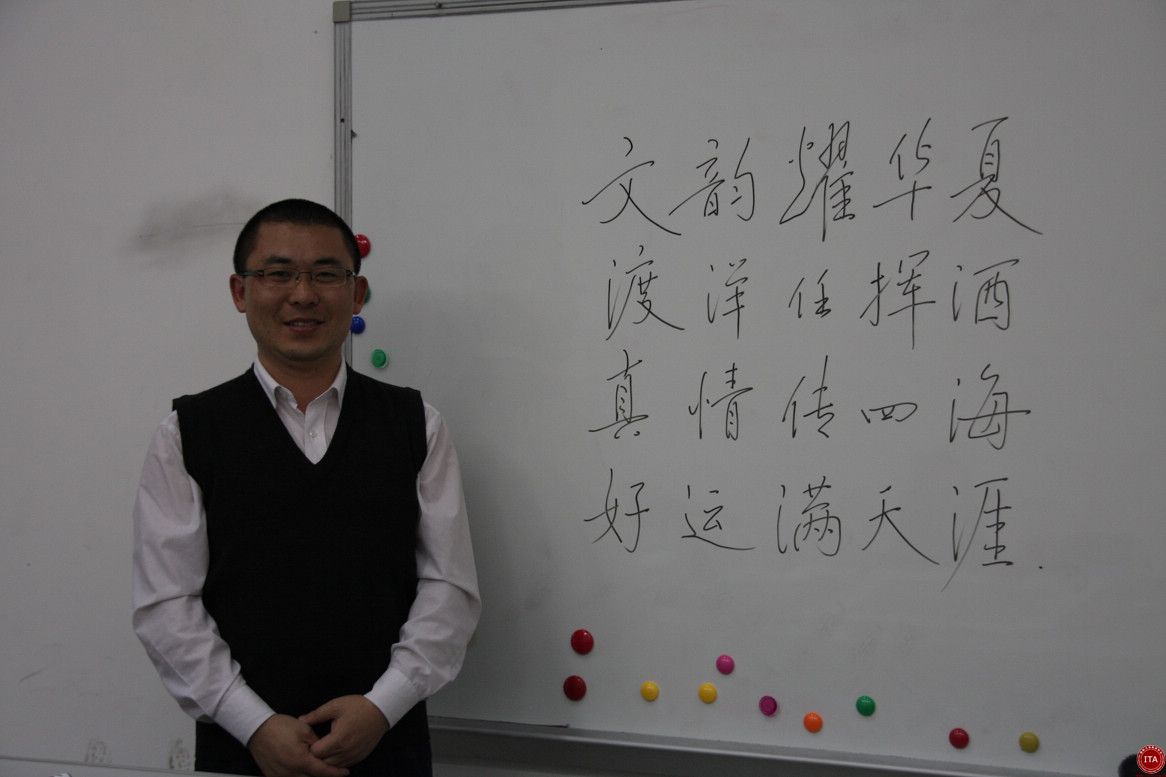 文韵耀华夏
渡洋任挥洒
真情传四海
好运满天涯.
ITA